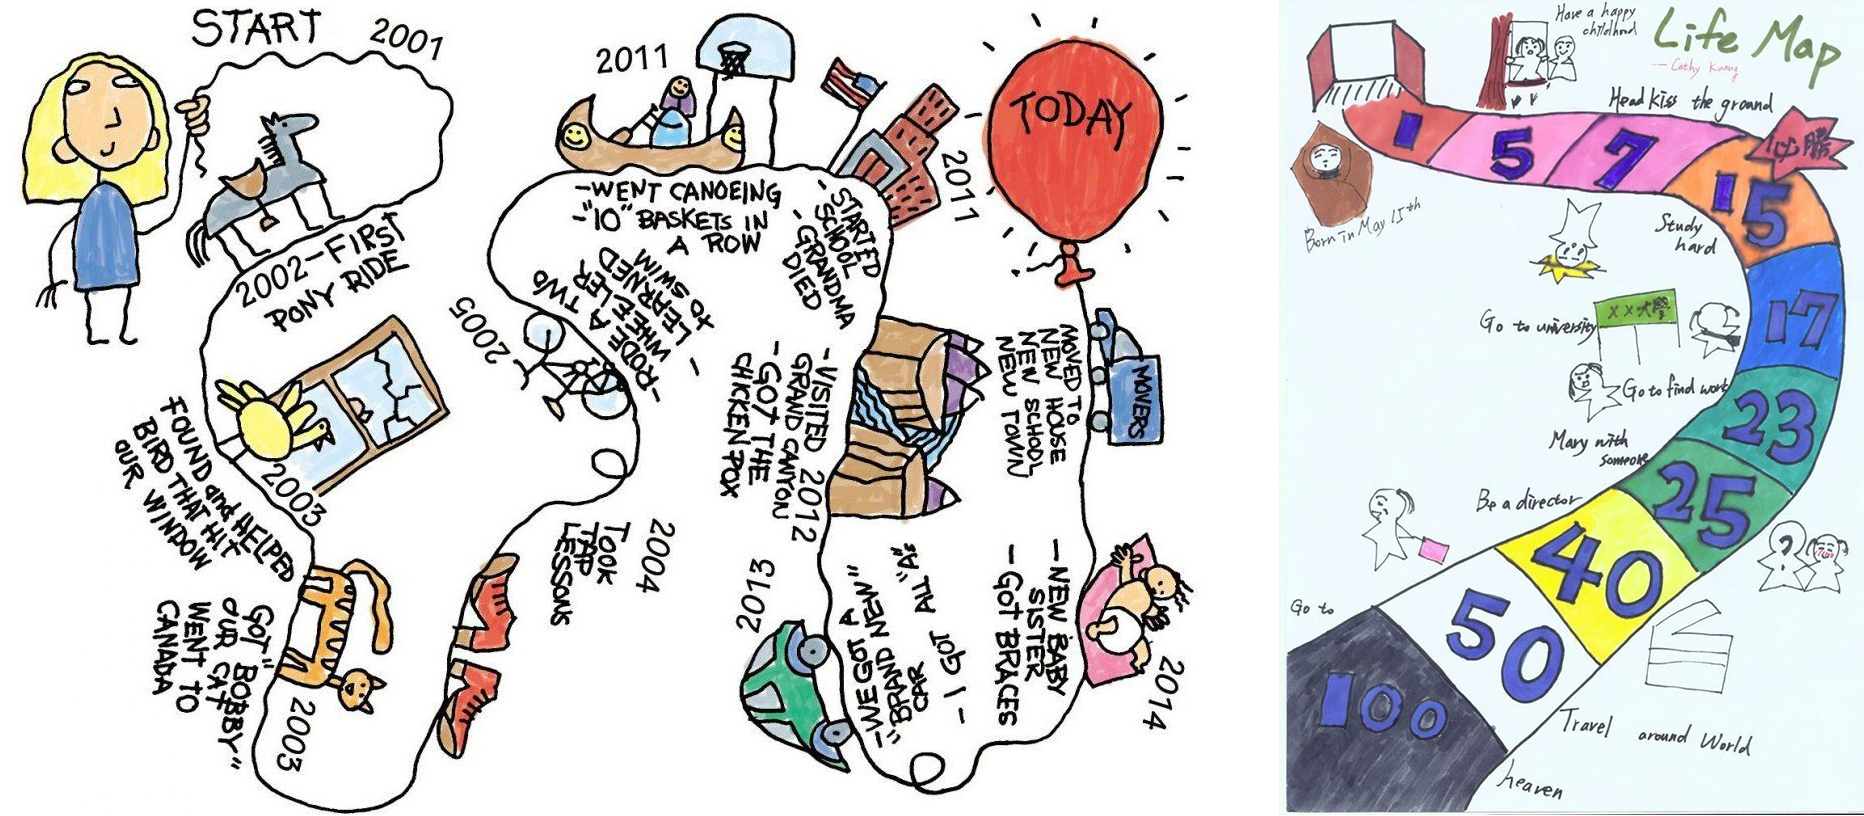 START
2001
2002-FIRST
PONY RIDE
2003
FOUND and HELPED
BIRD THAT HIT
OUR WINDOW
GOT "BOBBY"
OUR CAT
WENT TO
CANADA
2003
2004
TOOK
TAP
LESSONS
2005
-RODE A TWO
WHEELER
- LEARNED
TO SWIM
2011
-WENT CANOEING
-"10" BASKETS IN
A ROW
2011
- STARTED
SCHOOL
- GRANDMA
DIED
- VISITED 2012
GRAND CANYON
-GOT THE
CHICKEN POX
2013
-WE GOT A
"BRAND NEW"
CAR
- I GOT ALL "A"s
2014
-NEW BABY
SISTER
- GOT BRACES
MOVED TO
NEW HOUSE
NEW SCHOOL
NEW TOWN
MOVERS
TODAY
Life Map
— Cathy Kuang
Have a happy
childhood
Head kiss the ground
1
5
7
15
17
23
25
40
50
100
必勝
Born in May 15th
Study
hard
XX大學
Go to university
Go to find work
Mary with
someone
Be a director
Travel around World
Go to
heaven